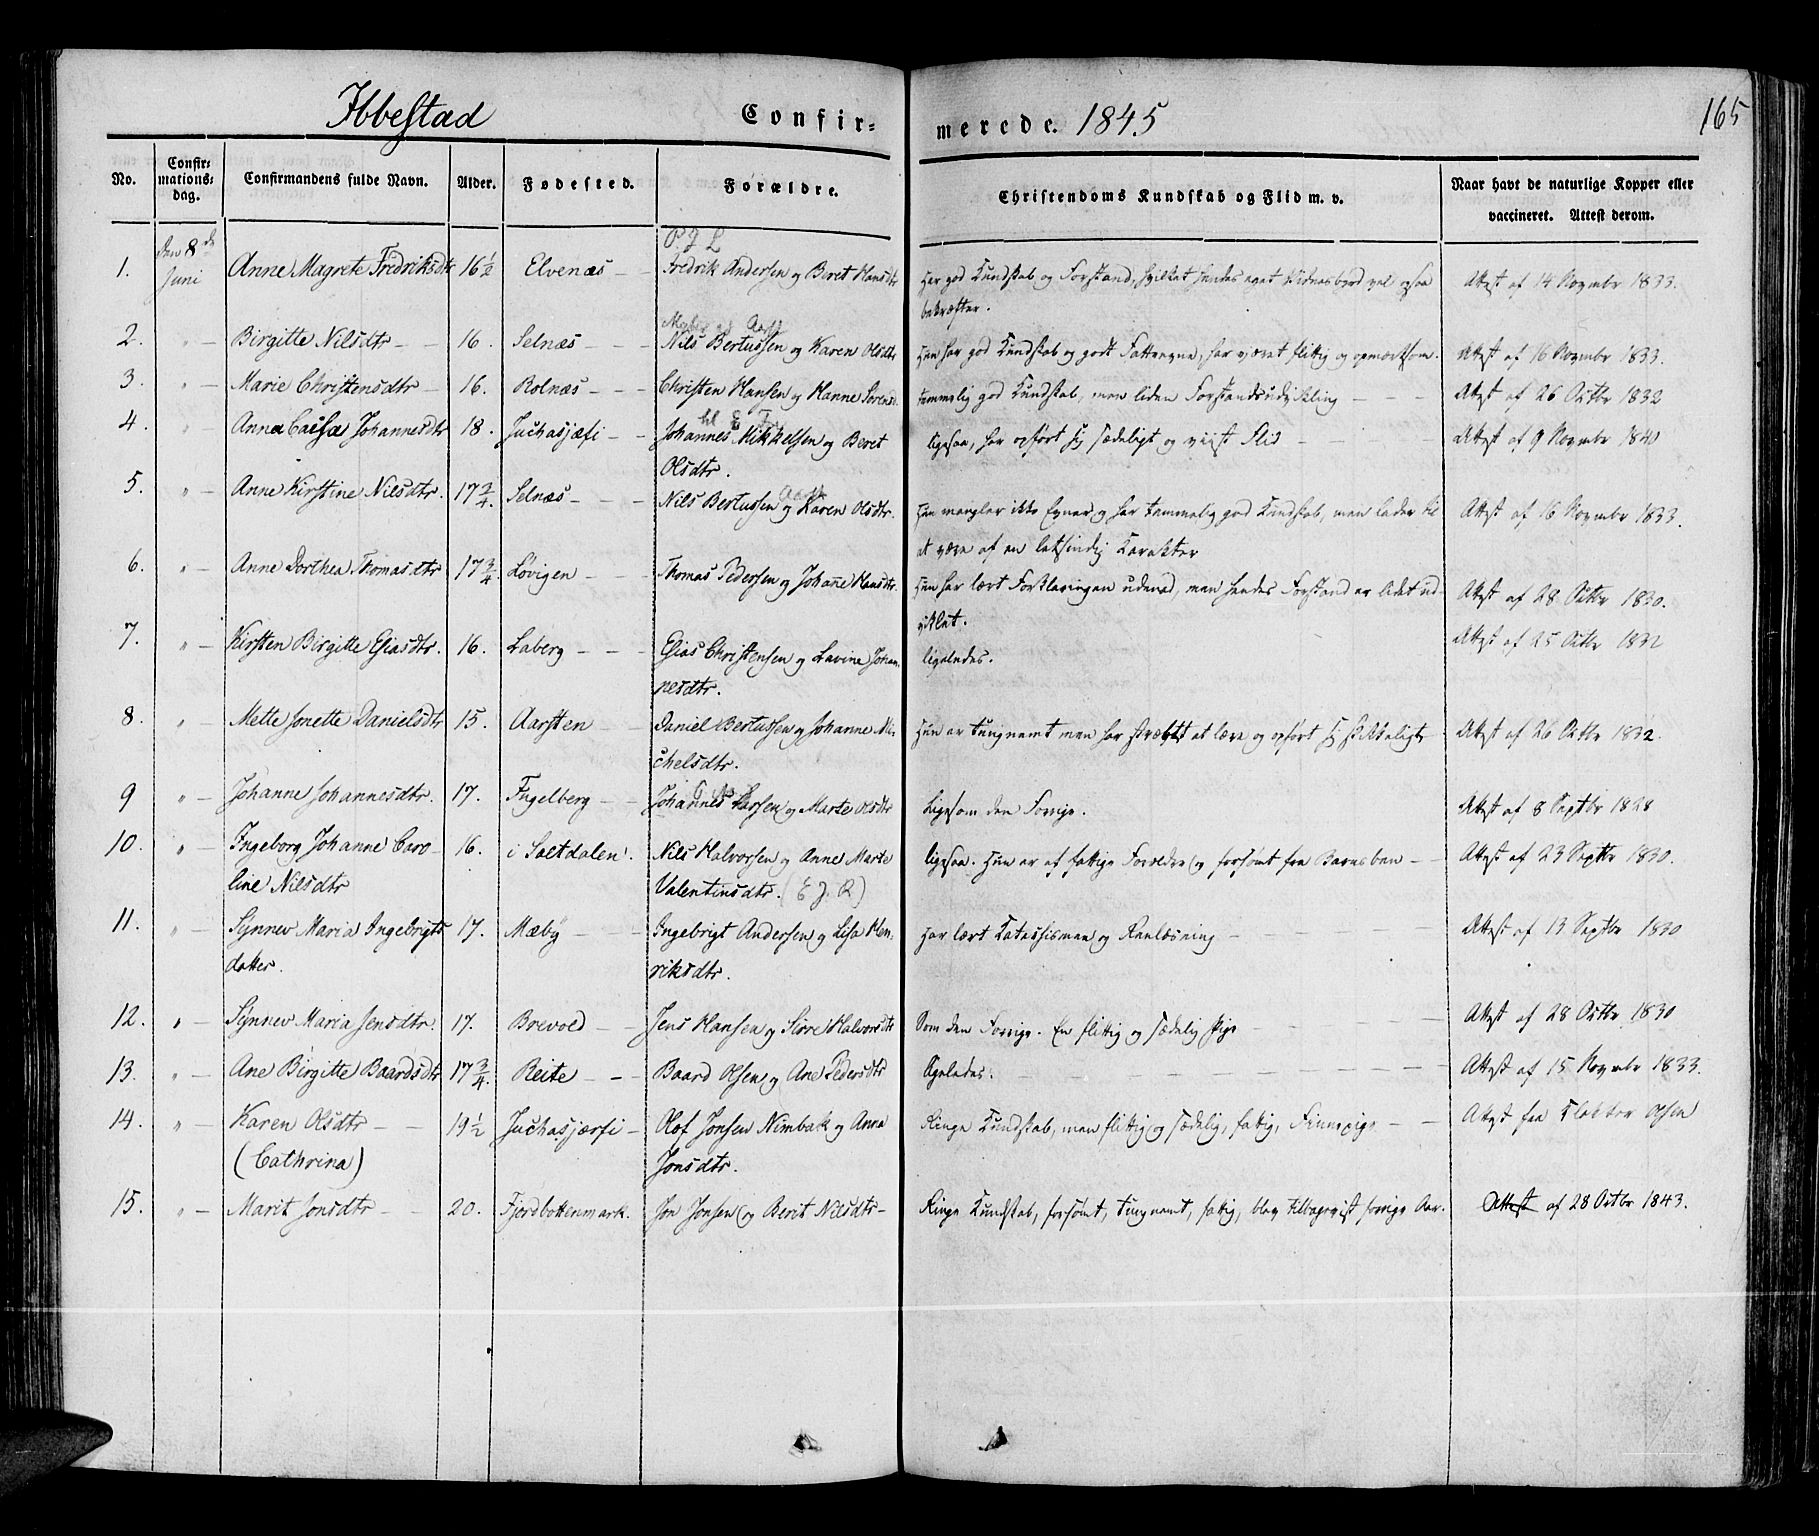 Ibbestad Confirmerede. 1845 165
No. Confirmationsdag. Confirmandens fulde Navn. Alder. Fødested. Forældre. Christendoms Kundskab og Flid m. v. Naar havt de naturlige Kopper eller vaccineret. Attest derom.
1. den 8de Juni Anne Magrete Fredriksdtr 16 1/2 Elvenæs Fredrik Andersen og Beret Hansdtr Har god Kundskab og Forstand, hvilket hendes eget Vidnesbyrd vel ogsaa Attest af 14 Novmbr 1833.
bekræfter.
2. " Birgitte Nilsdtr 16. Selnæs Nils Bertussen og Karen Olsdtr Hun har god Kundskab og godt Fatteevne, har været flittig og opmærksom. Attest af 16 Novmbr 1833.
3. " Marie Christensdtr 16. Rolnæs Christen Hansen og Hanne Sørensd. temmelig god Kundskab, men liden Forstandsudvikling Attest af 26 Octbr 1832
4. " Anna Caisa Johannesdtr 18. Juchasjæfi Johannes Mikkelsen og Beret ligesaa, har opført sig sædeligt og viist Flid Attest af 9 Novmbr 1840
Olsdtr.
5. " Anne Kirstine Nilsdtr. 17 3/4 Selnæs Nils Bertussen og Karen Olsdtr. Hun mangler ikke Evner og har temmelig god Kundskab, men lader til Attest af 16 Novmbr 1833.
at være af en letsindig Karakter
6. " Anne Dorthea Thomasdtr 17 3/4 Løvigen Thomas Pedersen og Johanne Hansdtr. Hun har lært Forklaringen udenad, men hendes Forstand er lidet ud- Attest af 28 Octbr 1830.
viklet.
7. " Kirsten Birgitte Esiasdtr. 16. Laberg Esias Christensen og Lavine Johan- ligeledes. Attest af 25 Octbr 1832
nesdtr.
8. " Mette Jonette Danielsdtr 15. Aarsten Daniel Bertussen og Johanne Mi- Hun er tungnemt men har stræbt at lære og opført sig skikkeligt Attest af 26 Octbr 1832.
chelsdtr.
9 " Johanne Johannesdtr. 17. Fugelberg Johannes Larsen og Marte Olsdtr Ligesom den Forrige. Attest af 8 Septbr 1828
10. " Ingeborg Johanne Caro- 16. i Saltdalen. Nils Halvorsen og Anne Marte ligesaa. Hun er af fattige Forældre og forsømt fra Barnsben Attest af 23 Septbr 1830.
line Nilsdtr Valentinsdtr. (E J. R)
11. " Synnev Maria Ingebrigts 17. Mæby Ingebrigt Andersen og Lisa Hen- Har lært Katechismen og Reenlæsning Attest af 13 Septbr 1830
datter. riksdtr.
12. " Synnev Maria Jensdtr. 17. Brevold Jens Hansen og Sirre Halvorsdtr Som den Forrige. En flittig og sædelig Pige Attest af 28 Octbr 1830
13. " Ane Birgitte Baardsdtr 17 3/4. Reite Baard Olsen og Ane Pedersdtr ligeledes. Attest af 15 Novmbr 1833.
14. " Karen Olsdtr 19 1/2 Juchasjærfi Olof Jonsen Nimbak og Anna Ringe Kundskab, men flittig og sædelig, fattig, Finnepige Attest fra Klokker Olsen
(Cathrina) Jonsdtr.
15. " Marit Jonsdtr 20. Fjordbottenmark. Jon Jonsen og Berit Nilsdtr Ringe Kundskab, forsømt, tungnemt, fattig, blev tilbageviist forrige Aar. Attest af 28 Octbr 1843.